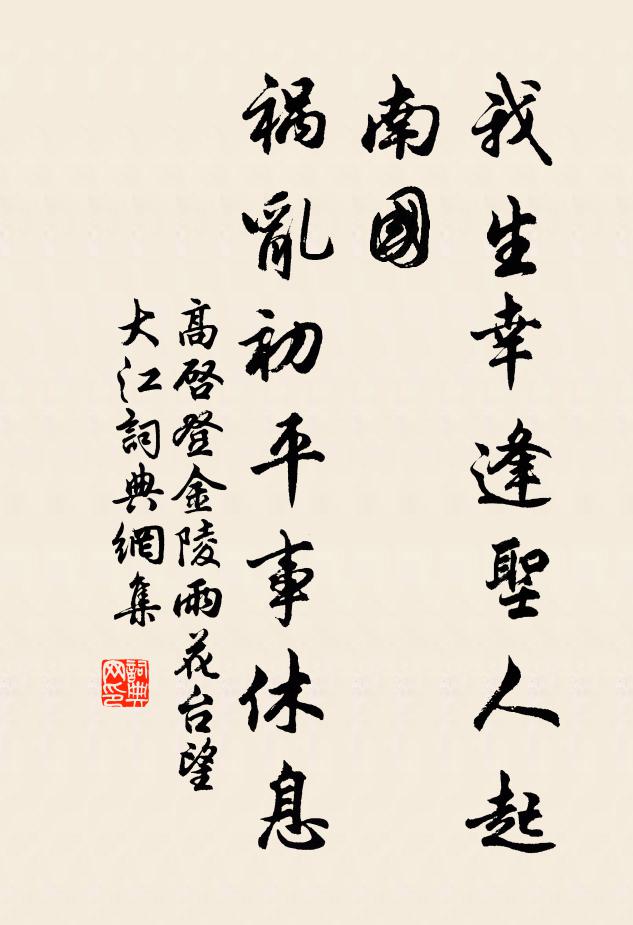 我生幸逢聖人起
南國
禍亂初平事休息
高啓登金陵雨花台望
大江詞典網集
詞典网印